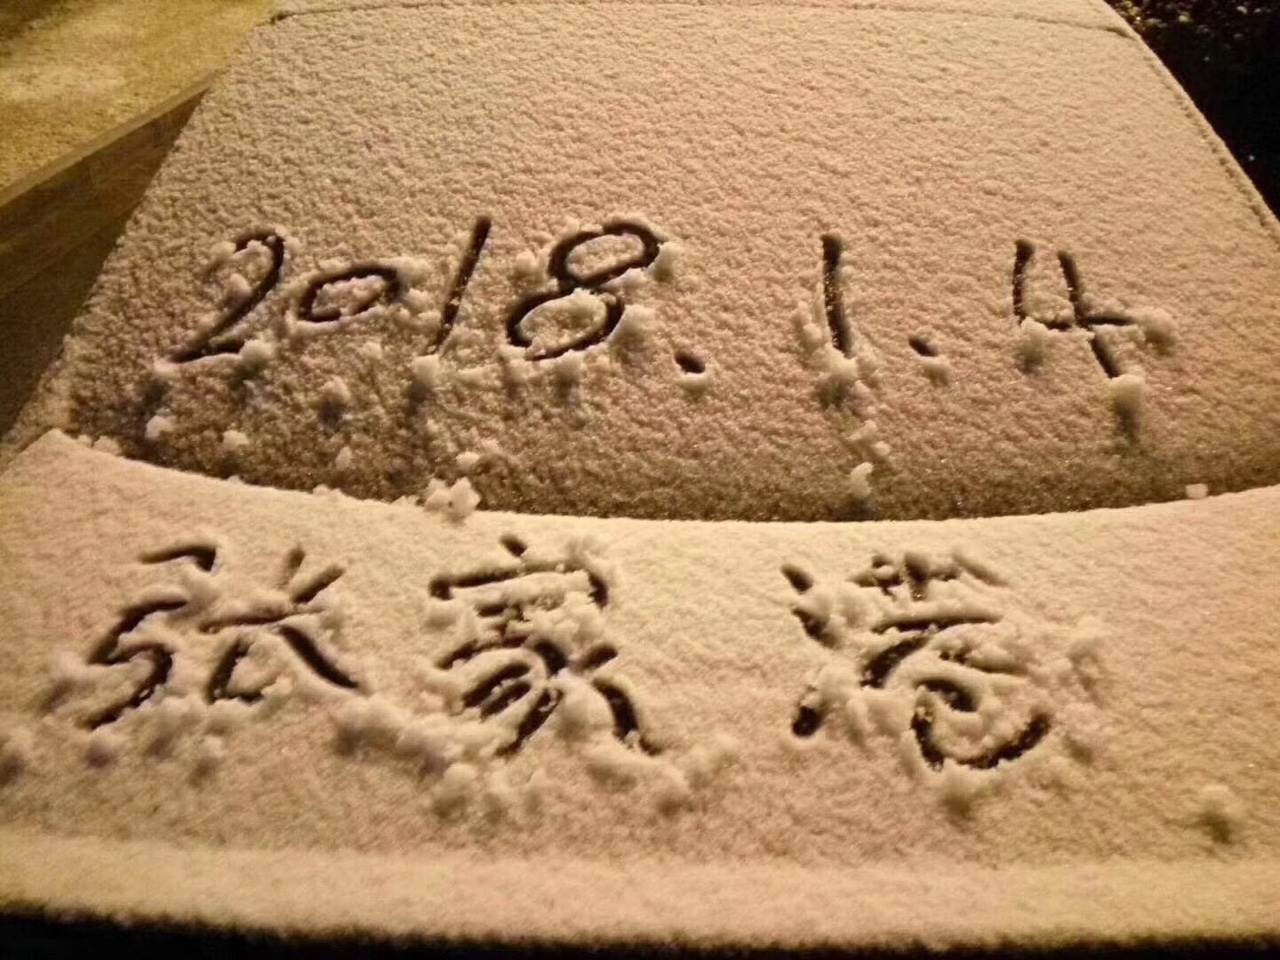 2018.1.4
张家港